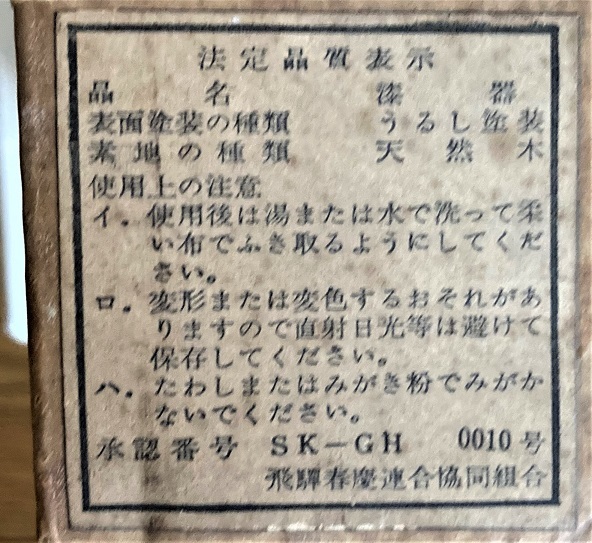 法定品質表示
品名 漆器
表面塗装の種類 うるし塗装
素地の種類 天然木
使用上の注意
イ．使用後は湯または水で洗って柔
い布でふき取るようにしてくだ
さい。
ロ．変形または変色するおそれがあ
りますので直射日光等は避けて
保存してください。
ハ．たわしまたはみがき粉でみがか
ないでください。
承認番号 SK－GH 0010号
飛驒春慶連合協同組合